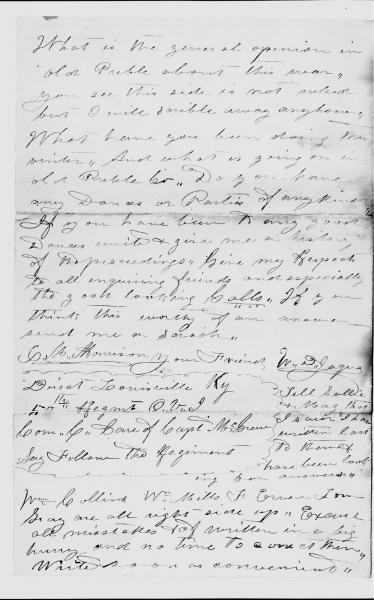 What is the general opinion in
old Preble about this war,,
you see this side is not ruled
but I will scrible away anyhow,,
What have you been doing this
winter,, And what is going on in
old Preble Co,, Do you have
any Dances or Parties of any kind
If you have been to any good
Dances write & give me a history
of the proceedings,, Give my Respects
to all enquiring friends and especially
the good looking Galls,, If you
think this worthy of an answer
send me a scrach,,
Your Friend, Wm D. Jaqua
C. M. Morrison,
Direct Louisville Ky
Regmt O. V. I.
Com. C,, Care of Capt.
Say Follow The Regiment
Tell
& Mag that
I have
written last
to them &
have been look
ing for answer,,
Wm Collins Wm Mills F
Gray are all right side up,, Excuse
all misstakes I've written in a big
hurry and no time to corect them,,
Write as soon as convenient,,